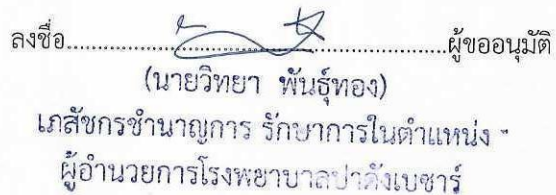 ลงชื่อ................................................ผู้ขออนุมัติ
(นายวิทยา พันธุ์ทอง)
เภสัชกรชำนาญการ รักษาการในตำแหน่ง -
ผู้อำนวยการโรงพยาบาลปาดังเบซาร์